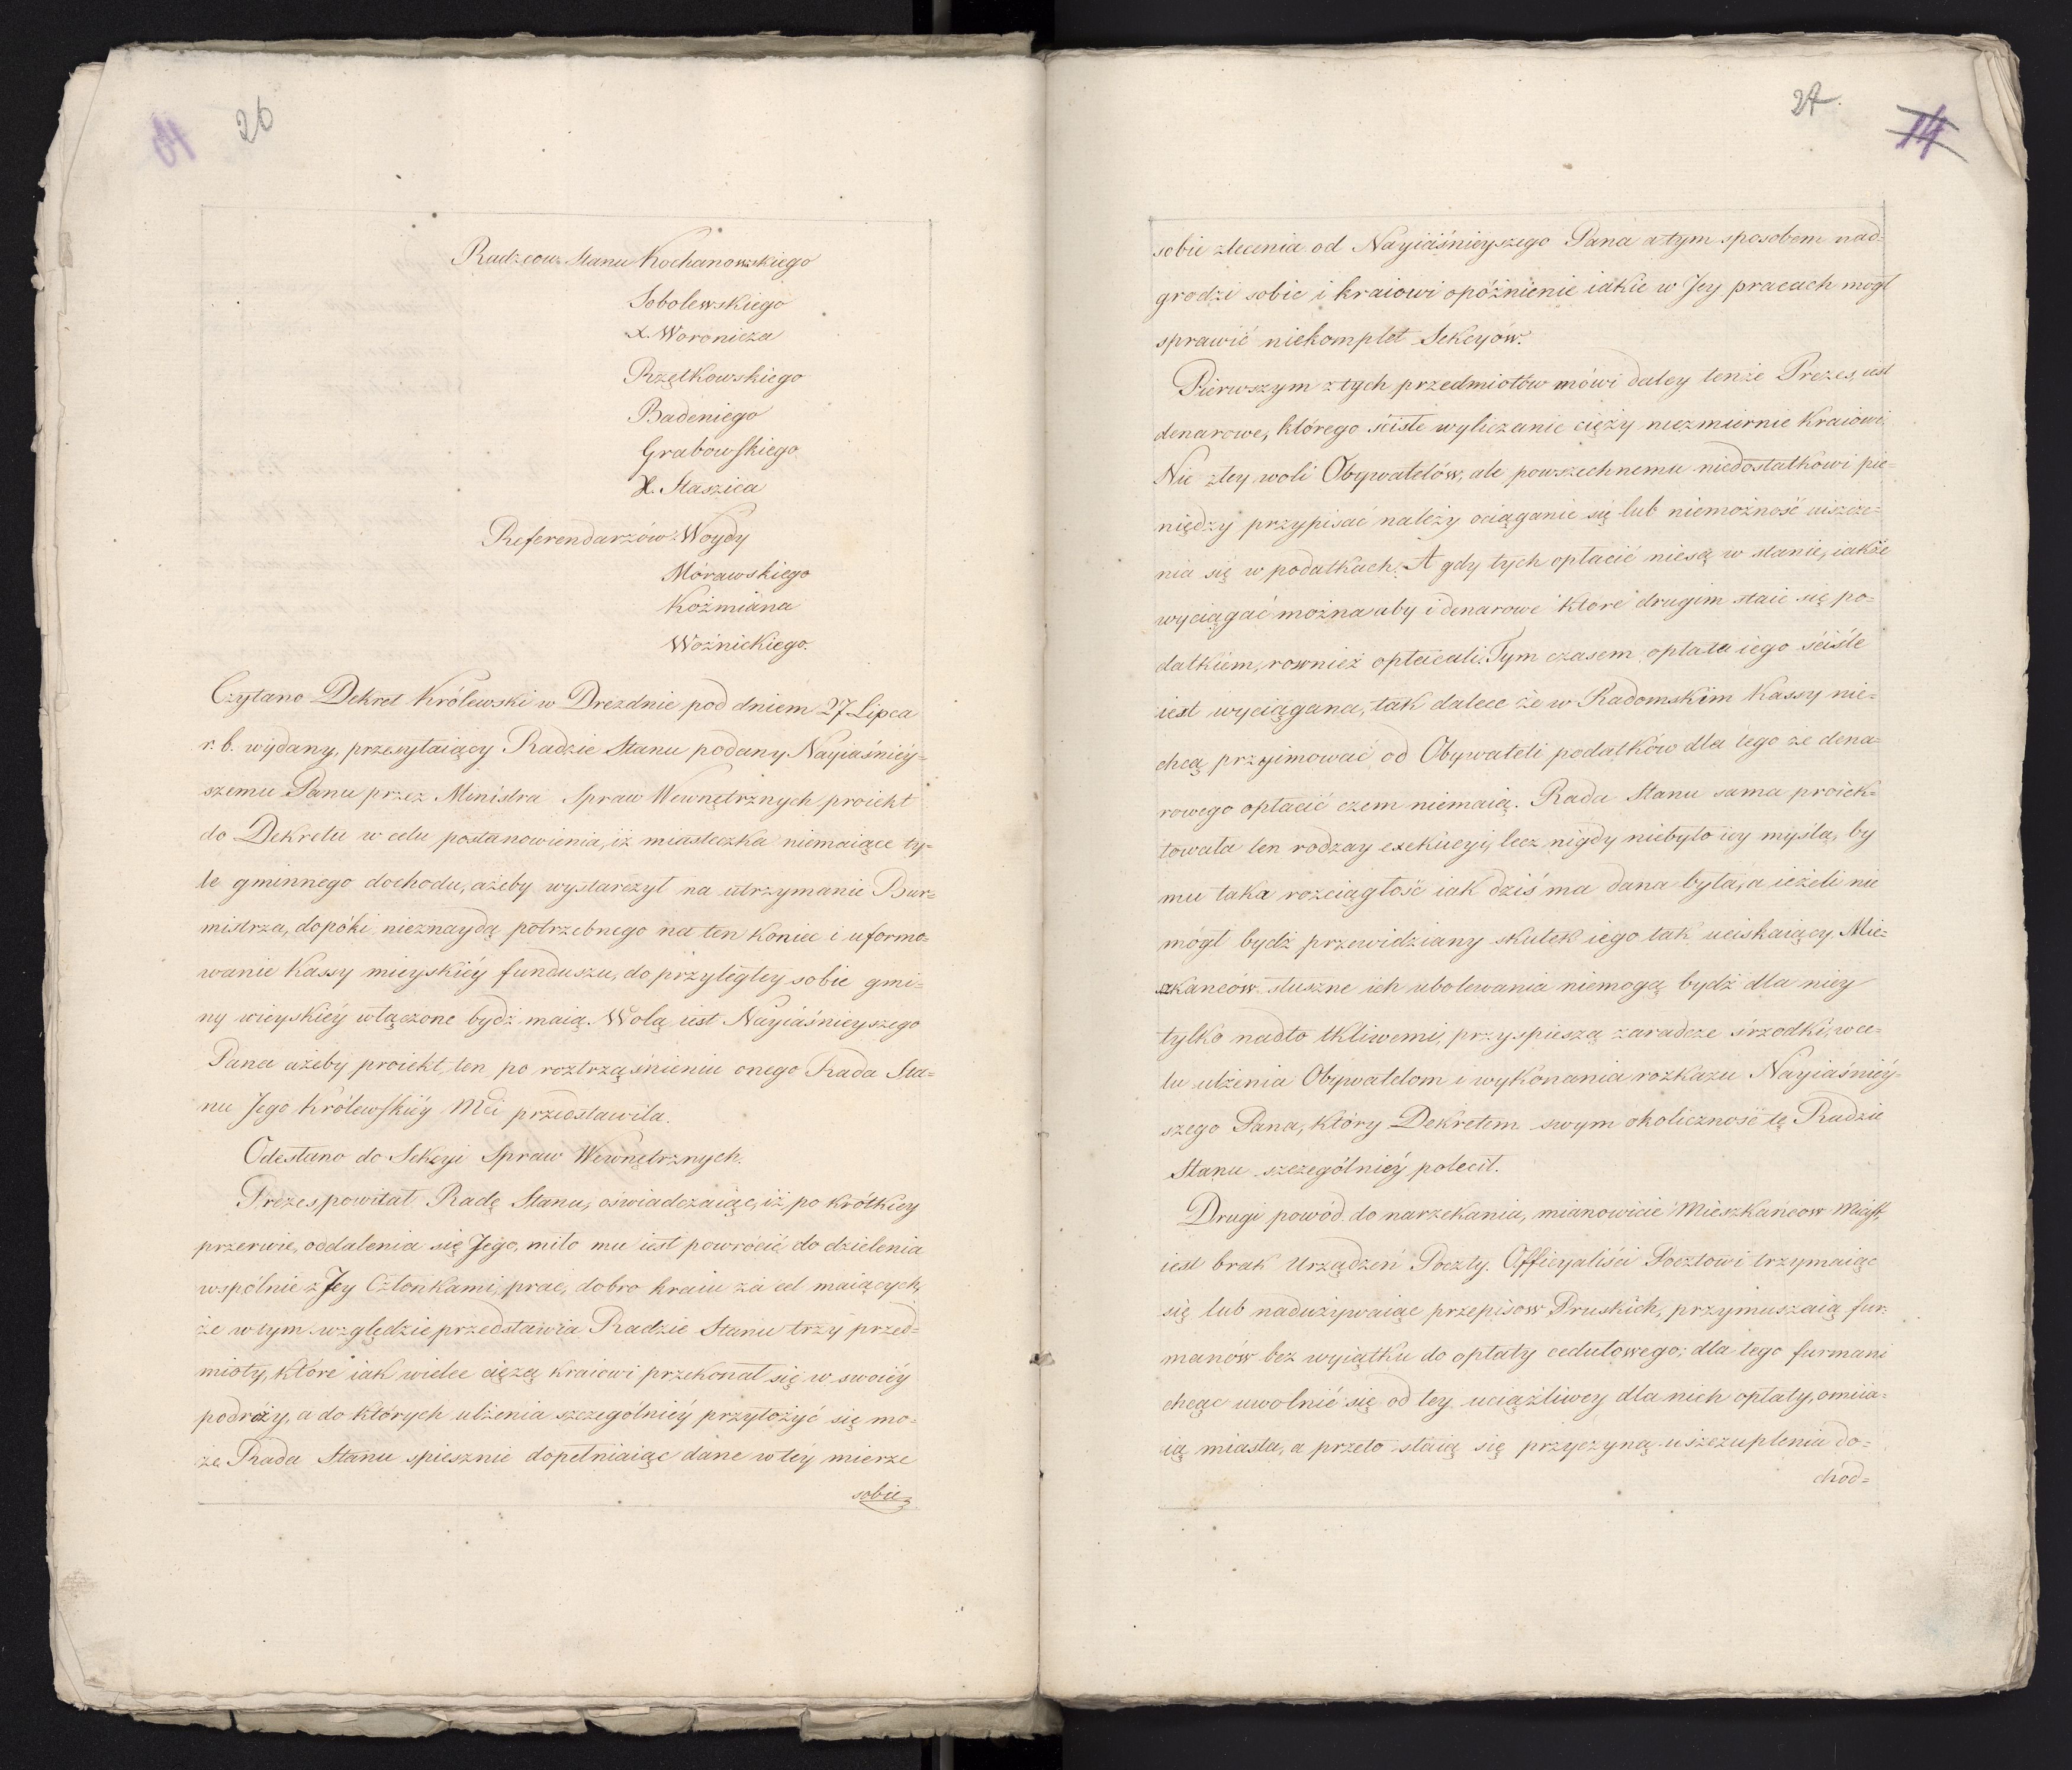 26
Radzcow Stanu Kochanowskiego
Sobolewskiego
X. Woronicza
Rzętkowskiego
Badeniego
Grabowskiego
X. Staszica
Referendarzów Woydy
Morawskiego
Koźmiana
Woźnickiego.
Czytano Dekret Królewski w Dreznie pod dniem 27 Lipca
r. b. wydany, przesyłaiący Radzie Stanu podany Nayiaśniéy=
szemu Panu przez Ministra Spraw Wewnętrznych proiekt
do Dekretu w celu postanowienia, iż miasteczka niemaiące ty=
le gminnego dochodu, ażeby wystarczył na utrzymanie Bur=
mistrza, dopóki nieznaydą potrzebnego na ten koniec i uformo=
wanie Kassy mieyskiéy funduszu, do przyległey sobie gmi=
ny wieyskiéy włączone bydź maią. Wolą iest Nayiaśnieyszego
Pana ażeby proiekt ten po roztrząśnieniu onego Rada Sta=
nu Jego Królewskiéy Mci przedstawiła.
Odesłano do Sekcyi Spraw Wewnętrznych.
Prezes, powitał Radę Stanu, oświadczaiąc, iż po krótkiey
przerwie, oddalenia się Jego, miło mu iest powrócić do dzielenia
wspólnie z Jey Członkami, prac, dobro kraiu za cel maiących,
że w tym względzie przedstawia Radzie Stanu trzy przed=
mioty, które iak wielce ciężą kraiowi przekonał się w swoiéy
podroży, a do których ulżenia szczególniéy przyłożyć się mo=
że Rada Stanu spiesznie dopełniaiąc dane w téy mierze
sobie
27.
14
sobie zlecenia od Nayiaśnieyszego Pana a tym sposobem nad=
grodzi sobie i kraiowi opóźnienie iakie w Jey pracach mógł
sprawić niekomplet Sekcyów.
Pierwszym z tych przedmiotów mówi daley tenże Prezes, iest
denarowe, którego ściste wyliczanie cięży niezmiernie Kraiowi.
Nie złey woli Obywatelów, ale powszechnemu niedostatkowi pie=
niędzy przypisać należy ociąganie się lub niemożność uiszcze=
nia się w podatkach. A gdy tych opłacić niesą w stanie, iakże
wyciągać można aby i denarowe które drugim staie się po=
datkiem, rownież opłacali. Tym czasem opłata iego ściśle
iest wyciągana, tak dalece że w Radomskim Kassy nie=
chcą przyimować od Obywateli podatków dla tego że dena=
rowego opłacić czem niemaią. Rada Stanu sama proiek=
towała ten rodzay exekucyi, lecz nigdy niebyło iey myślą, by
mu taka rozciągłość iak dziś ma dana była, a ieżeli nie
mógł bydź przewidziany skutek iego tak uciskaiący. Mie=
szkanców słuszne ich ubolewania niemogą bydź dla niey
tylko nadto tkliwemi, przyspieszą zaradcze śrzodki, w ce=
lu ulżenia Obywatelom i wykonania rozkazu Nayiaśniéy=
szego Pana, który Dekretem swym okoliczność tę Radzie
Stanu szczególniéy polecił.
Drugi powód do narzekania, mianowicie Mieszkańcow Miast,
iest brak Urządzeń Poczty. Officyaliści Pocztowi trzymaiąc
się lub nadużywaiąc przepisow Pruskich, przymuszaią fur=
manów bez wyiątku do opłaty cedułowego; dla tego furmani
chcąc uwolnić się od tey uciążliwey dla nich opłaty, omiia=
ią miasta, a przeto staią się przyczyną uszczuplenia do=
chod=